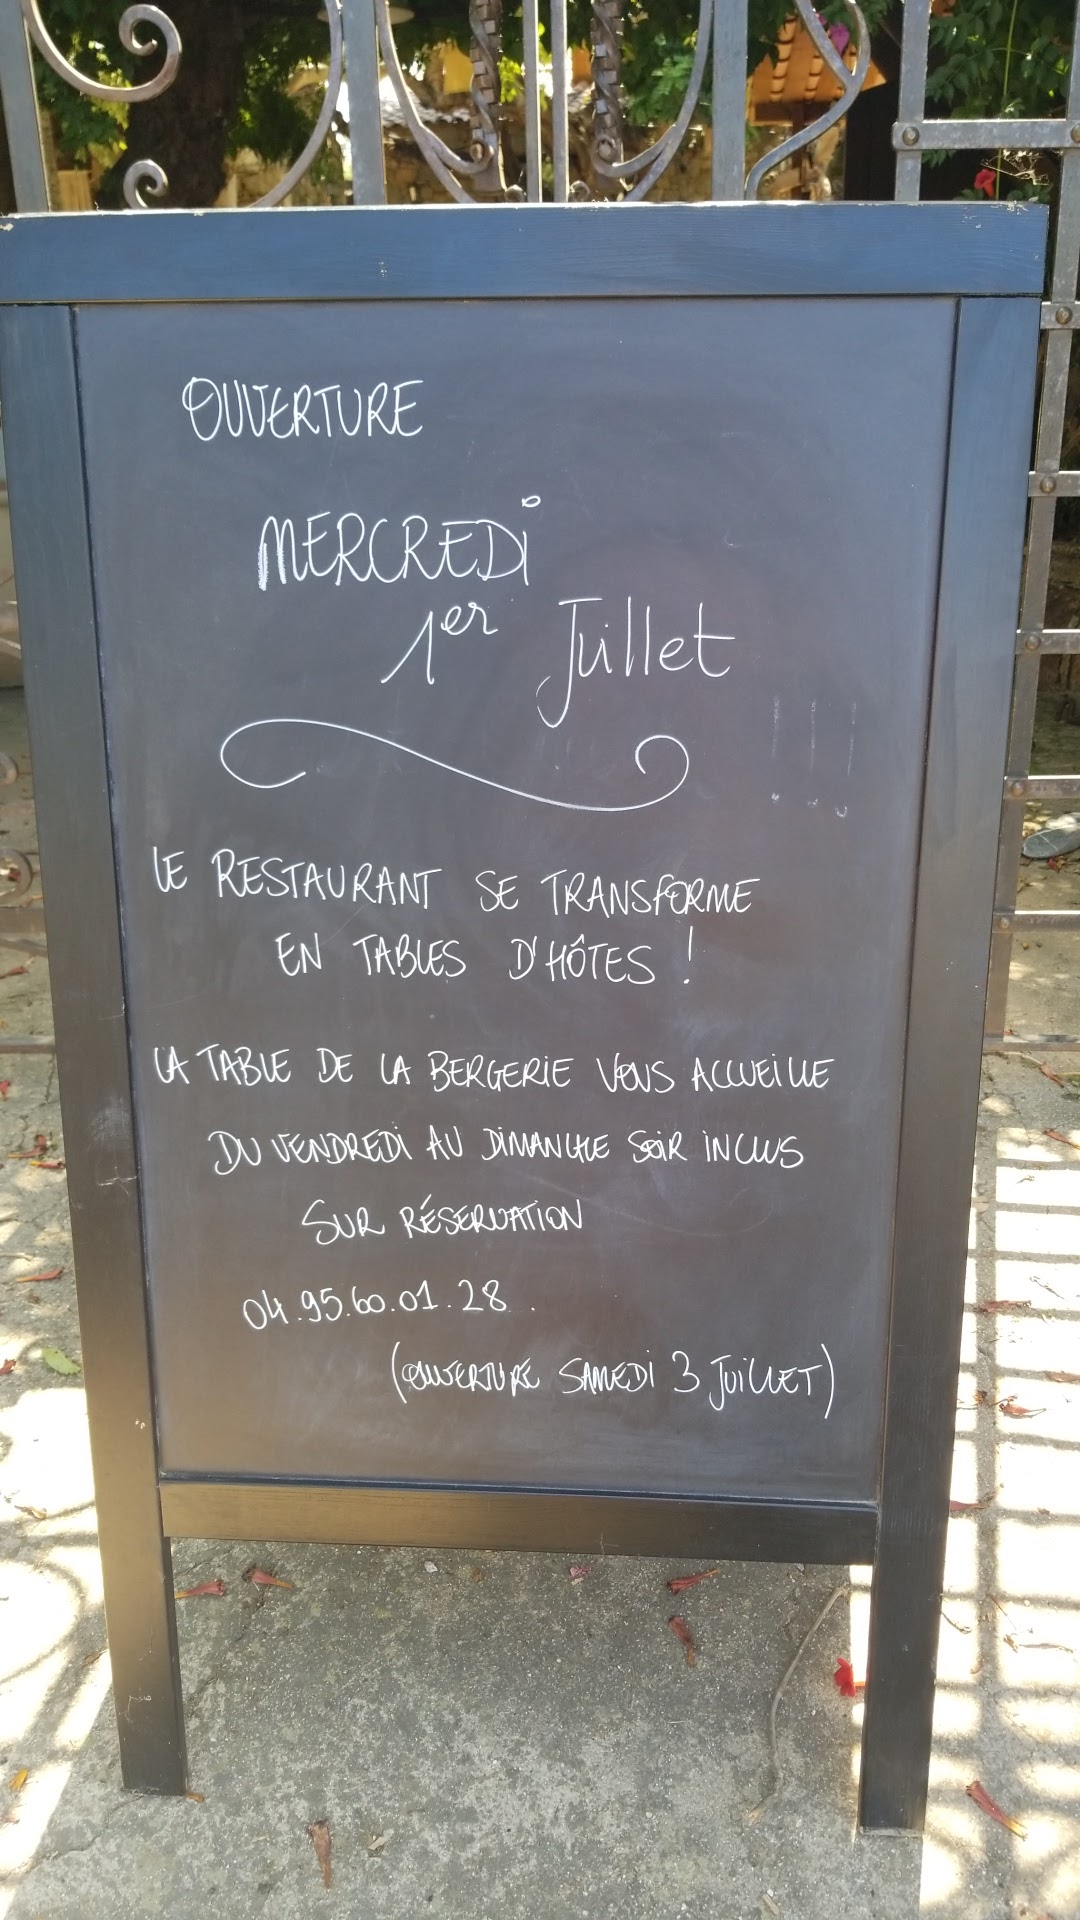 OUVERTURE
MERCREDi
1er Juillet
!!!
LE RESTAURANT SE TRANSFORME
EN TABLES D'HÔTES !
LA TABLE DE LA BERGERIE VOUS ACCUEILLE
DU VENDREDI AU DIMANCHE SOIR INCLUS
SUR RÉSERVATION
04.95.60.01.28.
(OUVERTURE SAMEDI 3 JUILLET)